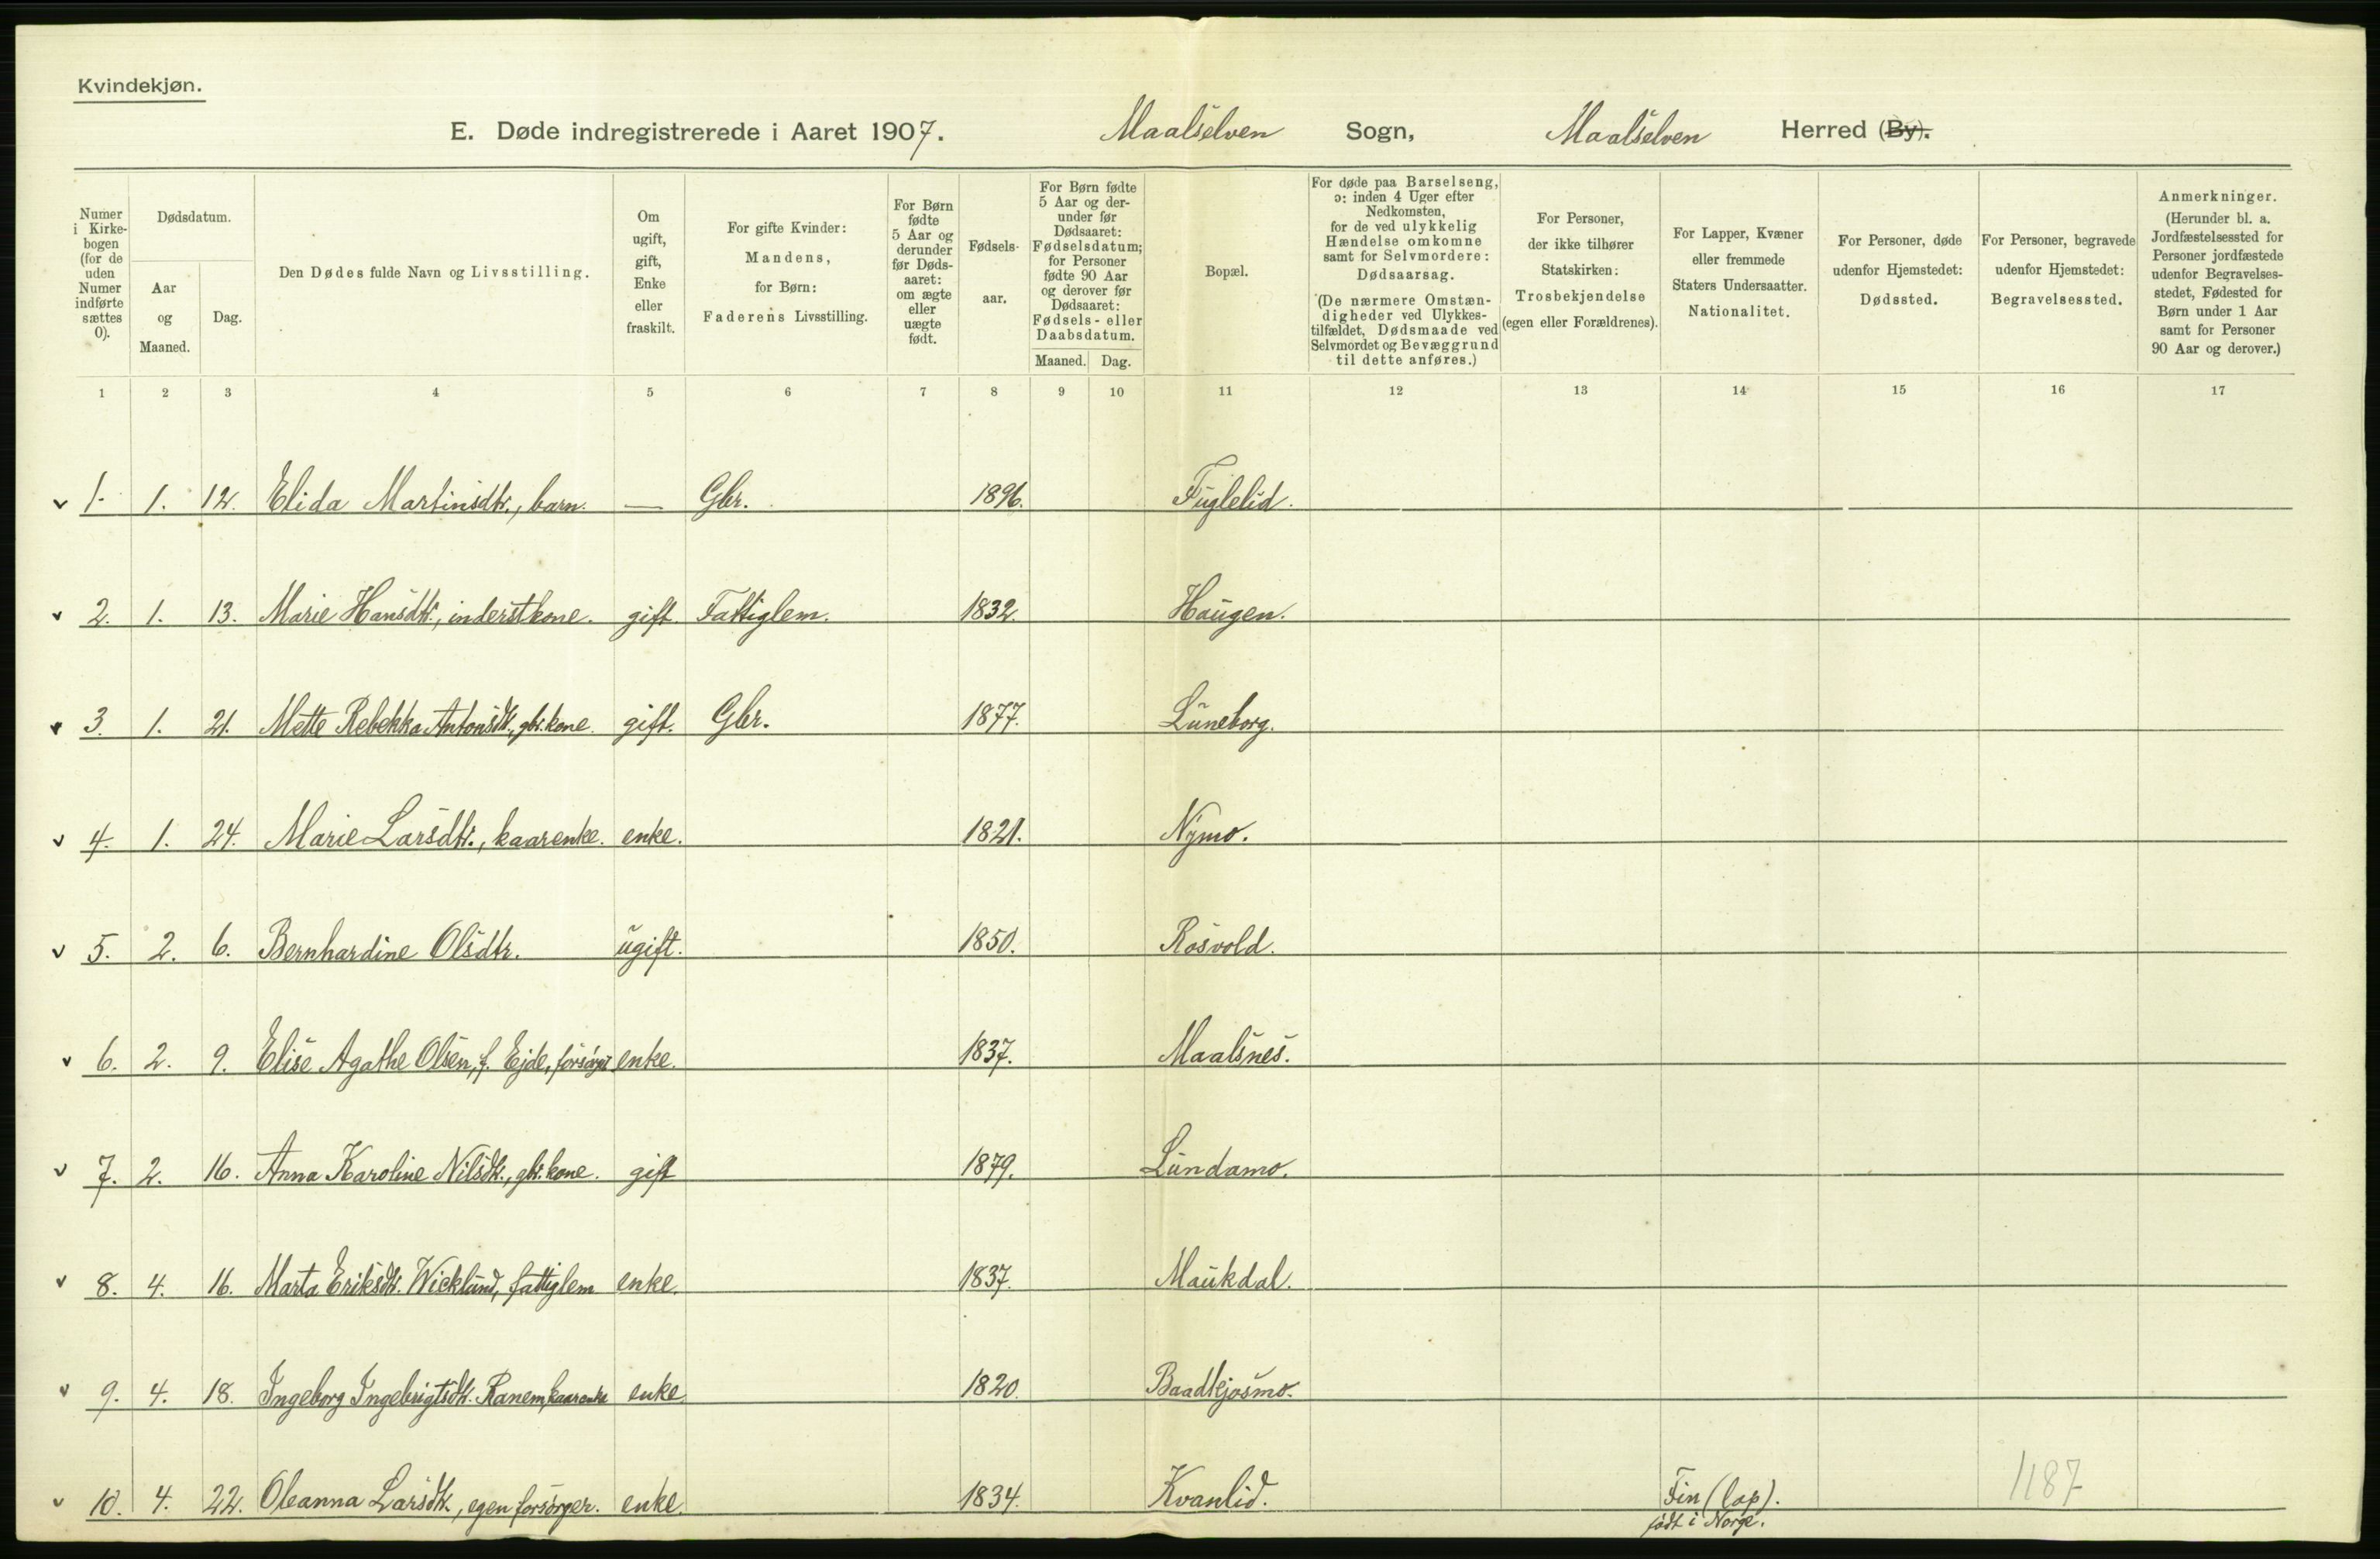 Kvindekjøn.
E. Døde indregistrerede i Aaret 1907. Maalselven Sogn, Maalselven Herred (By).
Numer i Kirke-bogen (for de uden Numer indførte sættes 0).
Dødsdatum.
Aar og Maaned.
Dag.
Den Dødes fulde Navn og Livsstilling.
Om ugift, gift, Enke eller fraskilt.
For gifte Kvinder: Mandens, for Børn: Faderens Livsstilling.
For Børn fødte 5 Aar og derunder før Døds-aaret: om ægte eller uægte født.
Fødsels-aar.
For Børn fødte 5 Aar og der-under før Dødsaaret: Fødselsdatum; for Personer fødte 90 Aar og derover før Dødsaaret: Fødsels- eller Daabsdatum.
Maaned. Dag.
Bopæl.
For døde paa Barselseng, ɔ: inden 4 Uger efter Nedkomsten, for de ved ulykkelig Hændelse omkomne samt for Selvmordere: Dødsaarsag.
(De nærmere Omstæn-digheder ved Ulykkes-tilfældet, Dødsmaade ved Selvmordet og Bevæggrund til dette anføres.)
For Personer, der ikke tilhører Statskirken: Trosbekjendelse (egen eller Forældrenes).
For Lapper, Kvæner eller fremmede Staters Undersaatter. Nationalitet.
For Personer, døde udenfor Hjemstedet: Dødssted.
For Personer, begravede udenfor Hjemstedet: Begravelsessted.
Anmerkninger. (Herunder bl. a. Jordfæstelsessted for Personer jordfæstede udenfor Begravelses-stedet, Fødested for Børn under 1 Aar samt for Personer 90 Aar og derover.)
1 2 3 4 5 6 7 8 9 10 11 12 13 14 15 16 17
v 1. 1. 12. Elida Martinsdtr., barn. — Gbr. 1896. Fuglelid.
v 2. 1. 13. Marie Hansdtr., inderstkone. gift. Fattiglem. 1832. Haugen.
v 3. 1. 21. Mette Rebekka Antonsdtr., gbr.kone. gift. Gbr. 1877. Luneborg.
v 4. 1. 24. Marie Larsdtr., kaarenke. enke. 1821. Nymo.
v 5. 2. 6. Bernhardine Olsdtr. ugift. 1850. Rosvold.
v 6. 2. 9. Elise Agathe Olsen, f. Ejde, forsørget enke. 1837. Maalsnes.
v 7. 2. 16. Anna Karoline Nilsdtr., gbr.kone. gift 1879. Lundamo.
v 8. 4. 16. Marta Eriksdtr. Wicklund, fattiglem enke. 1837. Maukdal.
v 9. 4. 18. Ingeborg Ingebrigtsdtr. Ranem, kaarenke enke. 1820. Baadkjosmo.
v 10. 4. 22. Oleanna Larsdtr., egen forsørger. enke. 1834. Kvanlid. Fin (lap). 1187
født i Norge.